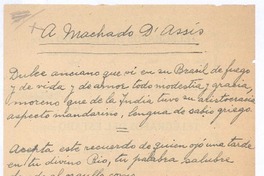 + A Machado D'Assis
Dulce anciano que vi en su Brasil de fuego
y de vida y de amor todo modestia y gracia,
moreno que de la India tuvo su aristocracia
aspecto mandarino, lengua de sabio griego.
Acepta este recuerdo de quien oyó una tarde
en tu divino Rio, tu palabra salubre